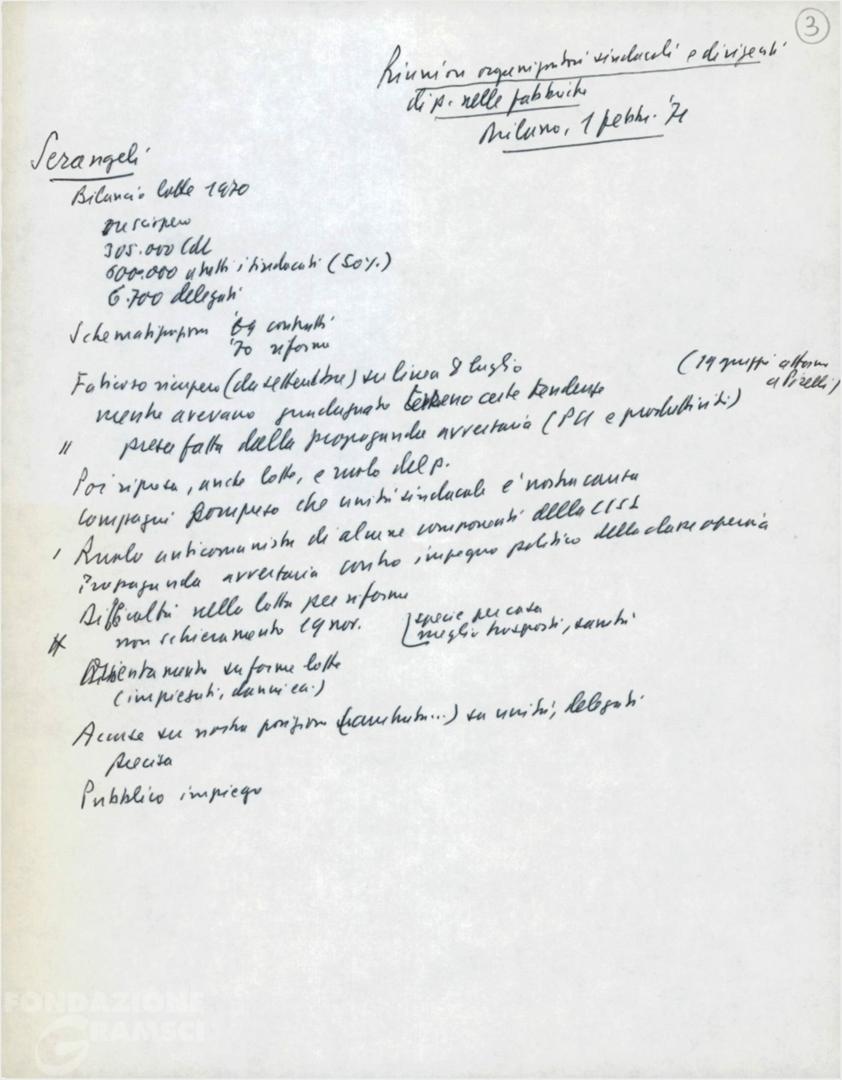 3
Riunione organizzatori sindacali e dirigenti
di p. nelle fabbriche
Milano, 1 febbr. '71
Serangeli
Bilancio lotte 1970
305.000 CdL
600.000 a tutti i sindacati (50%)
6.700 delegati
'69 contratti
'70 riforme
Faticoso recupero (da settembre) su linea 8 luglio
(19 gruppi attorno
a Pirelli)
mentre avevano guadagnato terreno certe tendenze
" presa fatta dalla propaganda avversaria (PCI e produttività)
Poi ripresa, anche lotte, e ruolo del p.
Compagni compreso che unità sindacale è nostra causa
Ruolo anticomunista di alcune componenti della CISL
Propaganda avversaria contro impegno politico della classe operaia
Difficoltà nella lotta per riforme
non schieramento 19 nov.
specie per casa
meglio trasporti, sanità
Orientamento su forme lotte
(impiegati, danni ecc.)
Accuse su nostra posizione su unità, delegati
precisa
Pubblico impiego
FONDAZIONE
GRAMSCI